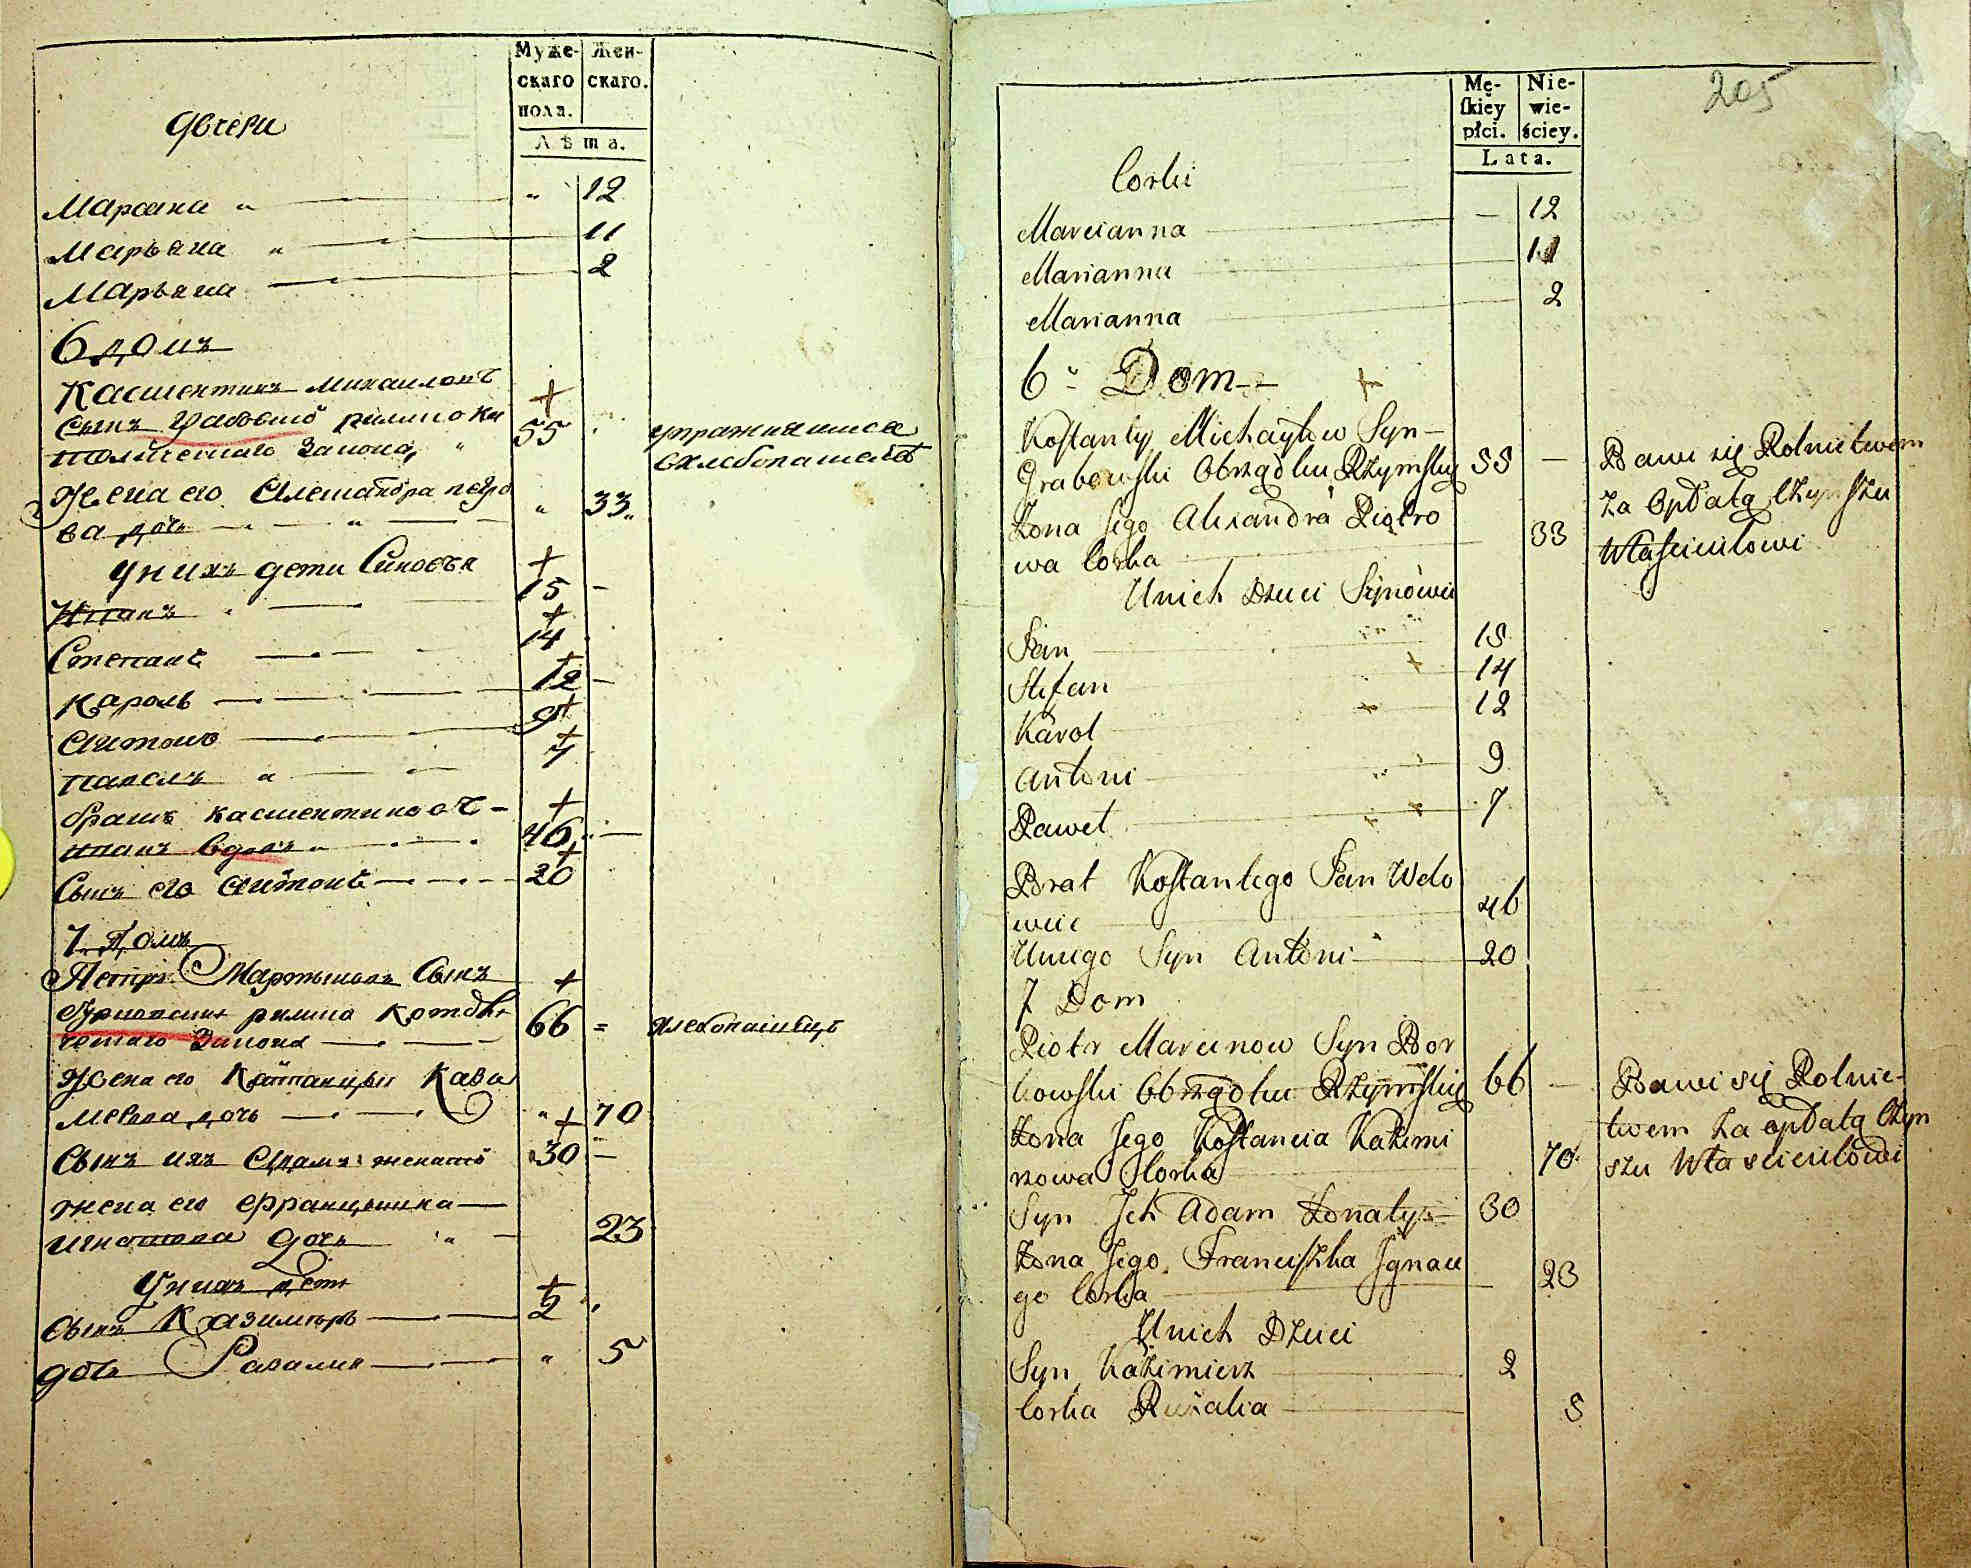 Муже-
скаго
пола.
Жен-
скаго.
Лѣта.
Дочери
Марсиана " — " 12
Марьяна " — 11
Марьяна — 2
6 домъ
Константинъ Михаиловъ +
Сынъ Грабовскiй римско ка 55 упражняется
толическаго Закона в хлебопашестве
Жена его Александра петро " 33
ва дочь
У нихъ дети Сыновья +
Иванъ 15 —
+
Степанъ 14
+
Кароль 12 —
Антонъ 9 +
+
Павелъ " 7
братъ константиновъ — +
иванъ вдовъ " 46 —
+
Сынъ его Антонъ 20
7 Домъ
Петръ Мартыновъ Сынъ +
римско католи 66 = хлебопашецъ
ческаго Закона
Жена его Констанцыя Кази
мерова дочь " 70
+
Сынъ ихъ Адамъ женатъ 30 —
жена его Францышка —
игнатова дочь " 23
У нихъ дети +
Сынъ Казимѣръ 2
дочь Разалия " 5
205
Mę-
skiey
płci.
Nie-
wie-
ściey.
Lata.
Corki
Marcianna — 12
Marianna 11
Marianna 2
6" Dom — +
Kostanty Michayłow Syn —
Grabowski Obrządku Rzymskig 55 — Bawi się Rolnictwem
za Opłatą Czynszu
Zona Jego Alexandra Piotro 33
wa Corka Właścicielowi
Unich Dzieci Synowie
Jan 15
Stefan + 14
Karol + 12
Antoni 9
Paweł + + 7
Brat Kostantego Jan Wdo
wiec 46
Uniego Syn Antoni 20
7 Dom
Piotr Marcinow Syn Bor
kowski Obrządku Rzymskig 66 — Bawi się Rolnic-
twem za opłatą Czyn
Zona Jego Kostancia Kazimi
rzowa Corka 70 szu Właścicielowi
Syn Ich Adam Zonaty 30
Zona Jego Franciszka Ignace
go Corka 23
Unich Dzieci
Syn Kazimierz 2
Corka Ruzalia 5